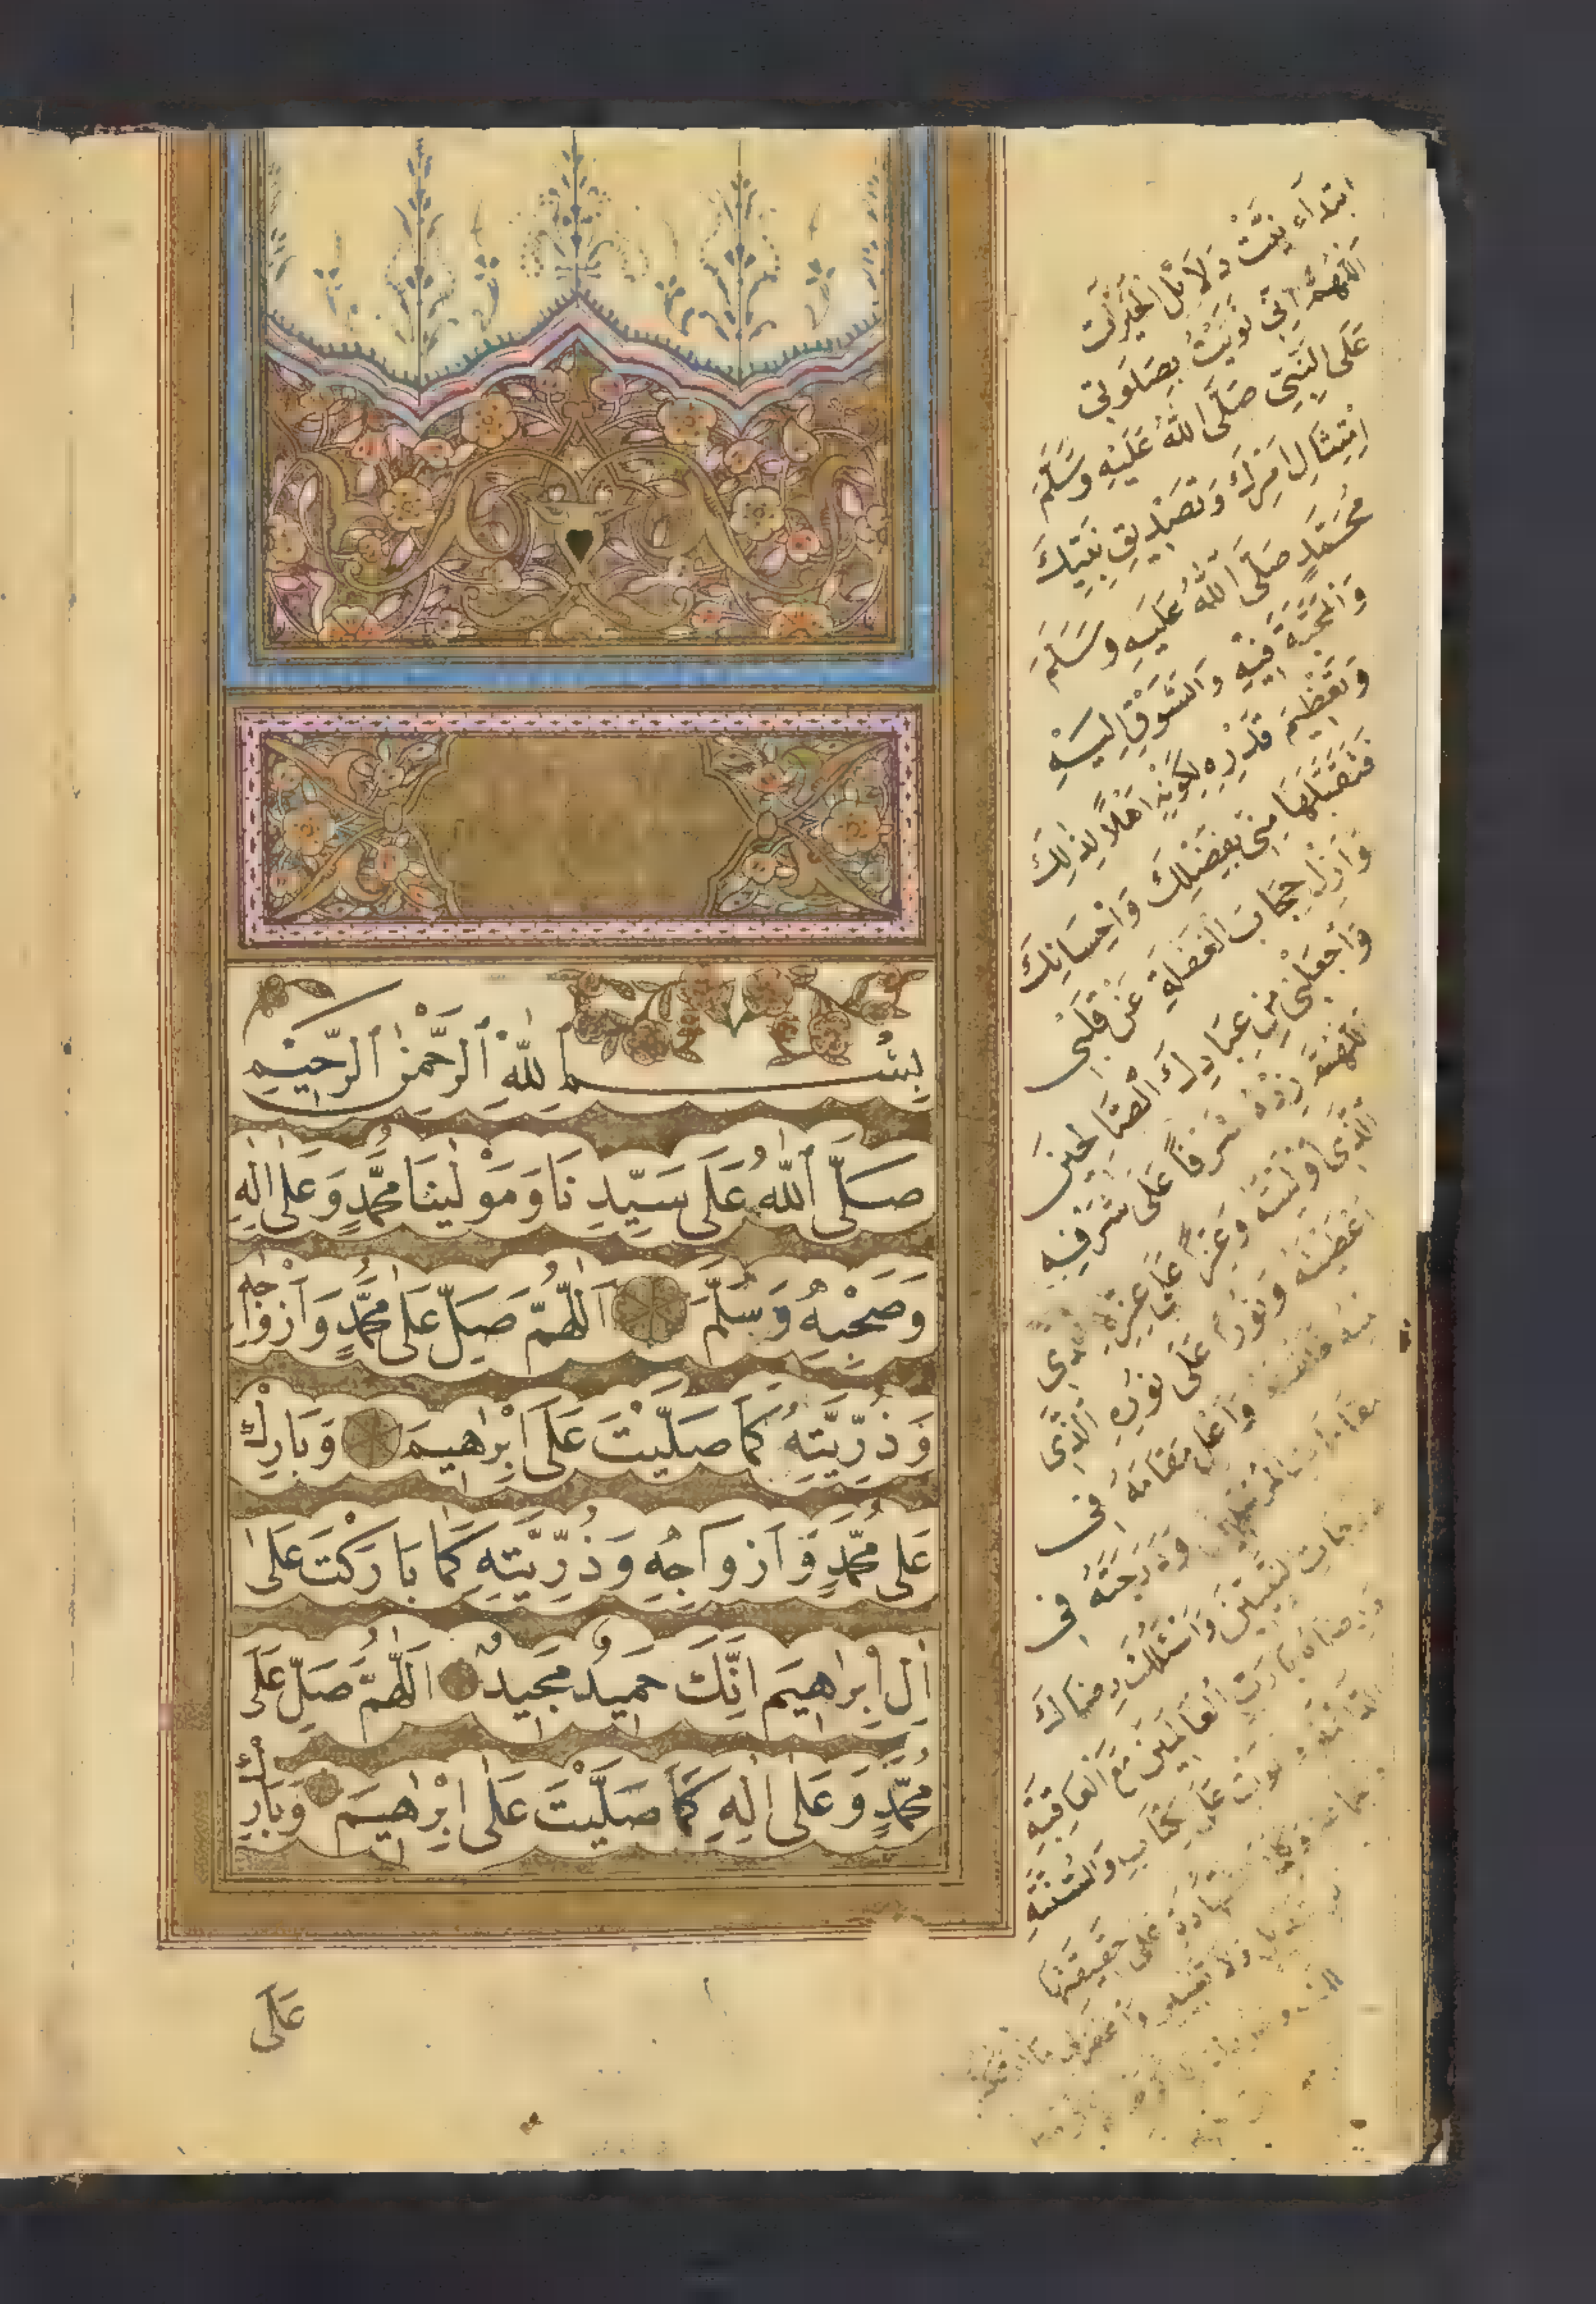 بِسْمِ اللّٰهِ الرَّحْمٰنِ الرَّحِيْمِ
صَلَّى اللّٰهُ عَلَى سَيِّدِنَا وَمَوْلٰينَا مُحَمَّدٍ وَعَلٰى اٰلِهِ
وَصَحْبِهِ وَسَلَّمَ اَللّٰهُمَّ صَلِّ عَلٰى مُحَمَّدٍ وَاَزْوَاجِهِ
وَذُرِّيَّتِهِ كَمَا صَلَّيْتَ عَلَى اِبْرٰهِيمَ وَبَارِكْ
عَلٰى مُحَمَّدٍ وَاَزْوَاجِهِ وَذُرِّيَّتِهِ كَمَا بَارَكْتَ عَلٰى
اٰلِ اِبْرٰهِيمَ اِنَّكَ حَمِيدٌ مَجِيدٌ اَللّٰهُمَّ صَلِّ عَلٰى
مُحَمَّدٍ وَعَلٰى اٰلِهِ كَمَا صَلَّيْتَ عَلٰى اِبْرٰهِيمَ وَبَارِكْ
عَلٰى
ابتداء نيّت دَلَائِل الخَيْرَات
اَللّٰهُمَّ اِنِّي نَوَيْتُ بِصَلَوتِي
عَلَى النَّبِيِّ صَلَّى اللّٰهُ عَلَيْهِ وَسَلَّمَ
اِمْتِثَالِ اَمْرِكَ وَتَصْدِيقِ نَبِيِّكَ
مُحَمَّدٍ صَلَّى اللّٰهُ عَلَيْهِ وَسَلَّمَ
وَالْمَحَبَّةِ فِيْهِ وَالشَّوْقِ اِلَيْهِ
وَتَعْظِيْمِ قَدْرِهِ لِكَوْنِهِ اَهْلًا لِذٰلِكَ
فَتَقَبَّلْهَا مِنِّي بِفَضْلِكَ وَاِحْسَانِكَ
وَاَزِلْ حِجَابَ الْغَفْلَةِ عَنْ قَلْبِى
وَاجْعَلْنِى مِنْ عِبَادِكَ الصَّالِحِينَ
اَللّٰهُمَّ زِدْهُ شَرَفًا عَلَى شَرَفِهِ
الَّذِى اَوْلَيْتَهُ وَعِزًّا عَلٰى عِزِّهِ الَّذِى
اَعْطَيْتَهُ وَنُورًا عَلَى نُورِهِ الَّذِى
مِنْهُ خَلَقْتَهُ وَاَعْلِ مَقَامَهُ فِى
مَقَامَاتِ الْمُرْسَلِينَ وَدَرَجَتَهُ فِى
دَرَجَاتِ النَّبِيِّينَ وَاَسْئَلُكَ رِضَاكَ
وَرِضَاهُ يَا رَبَّ الْعَالَمِينَ مَعَ الْعَافِيَةِ
الدَّائِمَةِ وَالْمَوْتِ عَلَى الْكِتَابِ وَالسُّنَّةِ
عَلَى حَقِيقَتِهَا